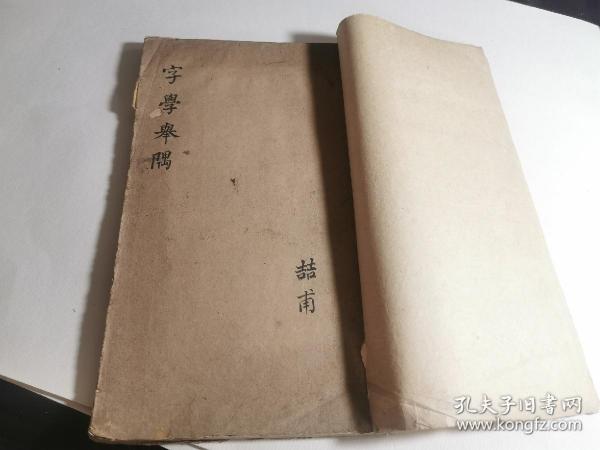 字學舉隅
喆甫
孔夫子旧书网
www.kongfz.com